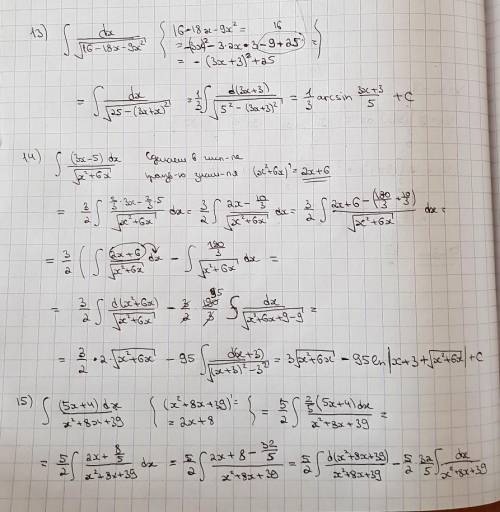 13) ∫ dx/√(16-18x-9x²) { 16-18x-9x² =
= -(3x)² - 3·2x·3 -9+25 = }
= -(3x+3)²+25
= ∫ dx/√(25-(3x+x)²) = 1/3 ∫ d(3x+3)/√(5²-(3x+3)²) = 1/3 arcsin (3x+3)/5 + C
14) ∫ (3x-5)dx/√(x²+6x) Сделаем в
(x²+6x)' = 2x+6
= 3/2 ∫ (2/3·3x-2/3·5)/√(x²+6x) dx = 3/2 ∫ (2x-10/3)/√(x²+6x) dx = 3/2 ∫ /√(x²+6x) dx =
= 3/2 ( ∫ (2x+6)/√(x²+6x) dx - ∫ /√(x²+6x) dx =
= 3/2 ∫ d(x²+6x)/√(x²+6x) - ∫ dx/√(x²+6x+9-9) =
= 3/2 · 2·√(x²+6x) - 95 ∫ d(x+3)/√((x+3)²-3²) = 3√(x²+6x) - 95 ln|x+3+√(x²+6x)| + C
15) ∫ (5x+4)dx/(x²+8x+39) { (x²+8x+39)' =
= 2x+8 } = 5/2 ∫ 2/5(5x+4)dx/(x²+8x+39) =
= 5/2 ∫ (2x+8/5)/(x²+8x+39) dx = 5/2 ∫ (2x+8-32/5)/(x²+8x+39) = 5/2 ∫ d(x²+8x+39)/(x²+8x+39) - 5/2 32/5 ∫ dx/(x²+8x+39)